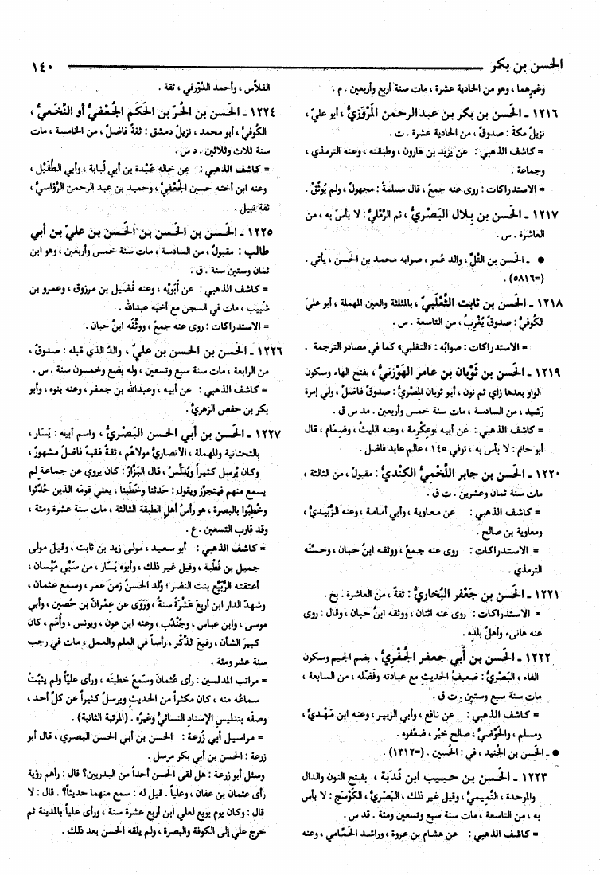 الحسن بن بكر
١٤٠
وغيرهما، وهو من الحادية عشرة، مات سنة أربع وأربعين. م.
١٢١٦ ـ الحَسَن بن بكر بن عبد الرحمن المَرْوَزيُّ، أبو علي،
نزيل مكة: صدوقٌ، من الحادية عشرة. ت.
= كاشف الذهبي: عن يزيد بن هارون، وطبقته، وعنه الترمذي،
وجماعة.
= الاستدراكات: روى عنه جمعٌ، قال مسلمة: مجهولٌ، ولم يُوثَّق.
١٢١٧ ـ الحَسَن بن بلال البَصْريُّ، ثم الرَّمْليُّ: لا بأس به، من
العاشرة. س.
● ـ الحسن بن التَّلِّ، والد عمر، صوابه محمد بن الحسن، يأتي.
(=٥٨١٦).
١٢١٨ ـ الحَسَن بن ثابت الثَّعْلَبيُّ، بالمثلثة والعين المهملة، أبو عليّ
الكُوفيُّ: صدوقٌ يُغْرِبُ، من التاسعة. س.
= الاستدراكات: صوابُه: «التغلبي» كما في مصادر الترجمة.
١٢١٩ ـ الحَسَن بن ثَوْبان بن عامر الهَوْزَنيُّ، بفتح الهاء وسكون
الواو بعدها زاي ثم نون، أبو ثوبان المِصْريُّ: صدوقٌ فاضلٌ، ولي إمرة
رَشيد، من السادسة، مات سنة خمس وأربعين. مد س ق.
= كاشف الذهبي: عن أبيه، وعكرمة، وعنه الليث، وضمام، قال
أبو حاتم: لا بأس به، توفي ١٤٥، عالم عابد فاضل.
١٢٢٠ ـ الحَسَن بن جابر اللَّخْميُّ الكِنْديُّ: مقبول، من الثالثة،
مات سنة ثمان وعشرين. ت ق.
= كاشف الذهبي: عن معاوية، وأبي أمامة، وعنه الزُّبيدي،
ومعاوية بن صالح.
= الاستدراكات: روى عنه جمعٌ، ووثقه ابنُ حبان، وحسَّنه
الترمذي.
١٢٢١ ـ الحَسَن بن جَعْفر البُخاريُّ: ثقةٌ، من العاشرة. بخ.
= الاستدراكات: روى عنه اثنان، ووثقه ابنُ حبان، وقال: روى
عنه هانىء، وأهلُ بلده.
١٢٢٢ ـ الحَسَن بن أبي جعفر الجُفْريُّ، بضم الجيم وسكون
الفاء، البَصْريُّ: ضعيفُ الحديث مع عبادته وفَضْله، من السابعة،
مات سنة سبع وستين. ت ق.
= كاشف الذهبي: عن نافع، وأبي الزبير، وعنه ابن مَهْديّ،
ومسلم، والحَوْضيُّ، صالح خيِّر، ضعَّفوه.
● ـ الحسن بن الجُنيد، في: الحسين. (=١٣١٢).
١٢٢٣ ـ الحَسَن بن حبيب ابن نَدَبة، بفتح النون والدال
والموحدة، التَّميميُّ، وقيل غير ذلك، البَصْريُّ، الكَوْسَجُ: لا بأس
به، من التاسعة، مات سنة سبع وتسعين ومئة. قد س.
= كاشف الذهبي: عن هشام بن عروة، وراشد الحماني، وعنه
الفلاَّس، وأحمد الدَّوْرقي، ثقة.
١٢٢٤ ـ الحَسَن بن الحُرّ بن الحَكَم الجُعْفيُّ أو النَّخَعيُّ،
الكُوفيُّ، أبو محمد، نزيل دمشق: ثقةٌ فاضلٌ، من الخامسة، مات
سنة ثلاث وثلاثين. د س.
= كاشف الذهبي: عن خاله عَبْدة بن أبي لُبابة، وأبي الطُّفيل،
وعنه ابن أخته حسين الجُعْفيُّ، وحميد بن عبد الرحمن الرُّؤاسيُّ،
ثقة نبيل.
١٢٢٥ ـ الحَسَن بن الحَسَن بن الحَسَن بن عليّ بن أبي
طالب: مقبولٌ، من السادسة، مات سنة خمس وأربعين، وهو ابن
ثمان وستين سنة. ق.
= كاشف الذهبي: عن أبَوَيْه، وعنه فُضيل بن مرزوق، وعمرو بن
شبيب، مات في السجن مع أخيه عبدالله.
= الاستدراكات: روى عنه جمعٌ، ووثَّقه ابنُ حبان.
١٢٢٦ ـ الحَسَن بن الحسن بن عليّ، والدُ الذي قبله: صدوق،
من الرابعة، مات سنة سبع وتسعين، وله بضع وخمسون سنة. س.
= كاشف الذهبي: عن أبيه، وعبدالله بن جعفر، وعنه بنوه، وأبو
بكر بن حفص الزهريُّ.
١٢٢٧ ـ الحَسَن بن أبي الحَسَن البَصْريُّ، واسم أبيه: يَسَار،
بالتحتانية والمهملة، الأنصاريُّ مولاهم، ثقةٌ فقيهٌ فاضلٌ مشهورٌ،
وكان يُرسل كثيراً ويُدَلِّسُ، قال البَزَّارُ: كان يروي عن جماعةٍ لم
يسمع منهم فيتجوَّز ويقول: حدثنا وخَطَبَنا، يعني قومَه الذين حُدِّثوا
وخُطِبوا بالبصرة، هو رأسُ أهل الطبقة الثالثة، مات سنة عشرة ومئة،
وقد قارب التسعين. ع.
= كاشف الذهبي: أبو سعيد، مولى زيد بن ثابت، وقيل مولى
جميل بن قُطْبة، وقيل غير ذلك، وأبوه يسار، من سَبْي مَيْسان،
أعتقته الرُّبَيِّع بنت النضر؛ وُلد الحسنُ زمن عمر، وسمع عثمان،
وشهد الدار ابن أربع عَشْرة سنةً، وروى عن عِمْران بن حُصين، وأبي
موسى، وابن عباس، وجُنْدُب، وعنه ابن عون، ويونس، وأمم، كان
كبيرَ الشأن، رفيعَ الذِّكْر، رأساً في العلم والعمل، مات في رجب
سنة عشر ومئة.
= مراتب المدلسين: رأى عُثمان وسَمِعَ خطبته، ورأى علياً ولم يثبتْ
سماعُه منه، كان مكثراً من الحديثِ ويرسل كثيراً عن كلِّ أحد،
وصفَه بتدليسِ الإسنادِ النسائيُّ وغيرُه. (المرتبة الثانية).
= مراسيل أبي زُرعة: الحسن بن أبي الحسن البصري، قال أبو
زرعة: الحسن بن أبي بكر مرسل.
وسئل أبو زرعة: هل لقي الحسن أحداً من البدريين؟ قال: رآهم رؤية
رأى عثمان بن عفان، وعلياً. قيل له: سمع منهما حديثاً؟. قال: لا
قال: وكان يوم يويع لعلي ابن أربع عشرة سنة، ورأى علياً بالمدينة ثم
خرج علي إلى الكوفة والبصرة، ولم يلقه الحسن بعد ذلك.